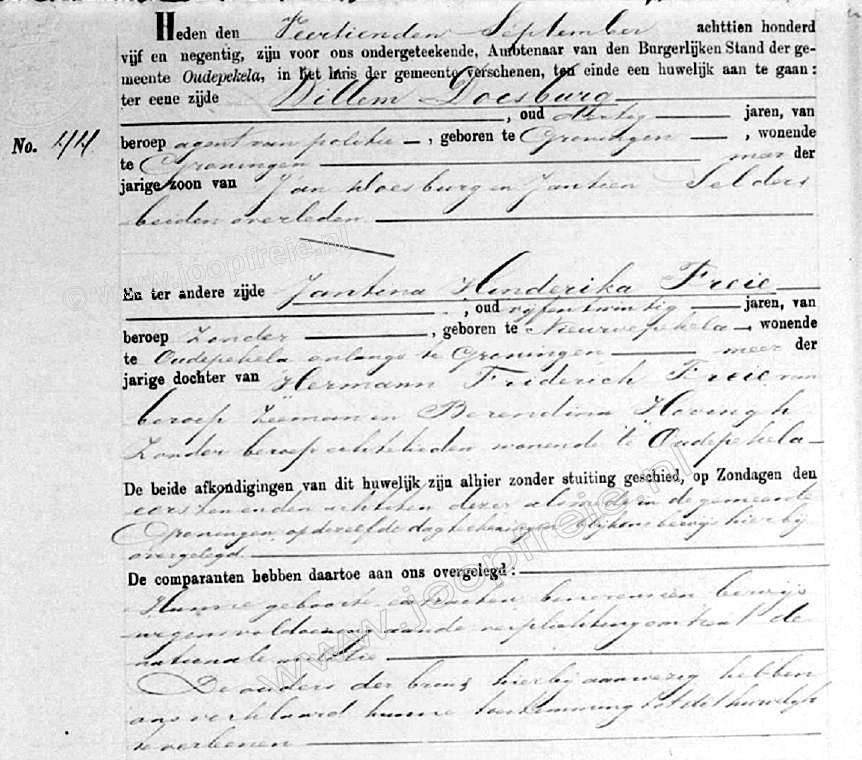 Heden den Veertienden September achttien honderd
vijf en negentig, zijn voor ons ondergeteekende, Ambtenaar van den Burgerlijken Stand der ge-
meente Oudepekela, in het huis der gemeente verschenen, ten einde een huwelijk aan te gaan:
ter eene zijde Willem Doesburg
, oud dertig jaren, van
No. 44
beroep agent van politie, geboren te Groningen, wonende
te Groningen meer der
jarige zoon van Jan Doesburg en Jantien Selders
beiden overleden
En ter andere zijde Jantina Hinderika Freie
, oud vijfentwintig jaren, van
beroep Zonder, geboren te Nieuwepekela, wonende
te Oudepekela onlangs te Groningen meer der
jarige dochter van Hermann Friderich Freie van
beroep Zeeman en Berendina Hovingh
Zonder beroep echtelieden wonende te Oudepekela
De beide afkondigingen van dit huwelijk zijn alhier zonder stuiting geschied, op Zondagen den
eersten en den achtsten dezer alsmede in de gemeente
Groningen op dezelfde dagteekeningen blijkens bewijs hierbij
overgelegd
De comparanten hebben daartoe aan ons overgelegd:
Hunne geboorte extracten benevens een bewijs
wegens voldoening aan de verplichting omtrent de
nationale militie
De ouders der bruid hierbij aanwezig hebben
ons verklaard hunne toestemming tot dit huwelijk
te verleenen
© www.joopfreie.nl
www.joopfreie.nl